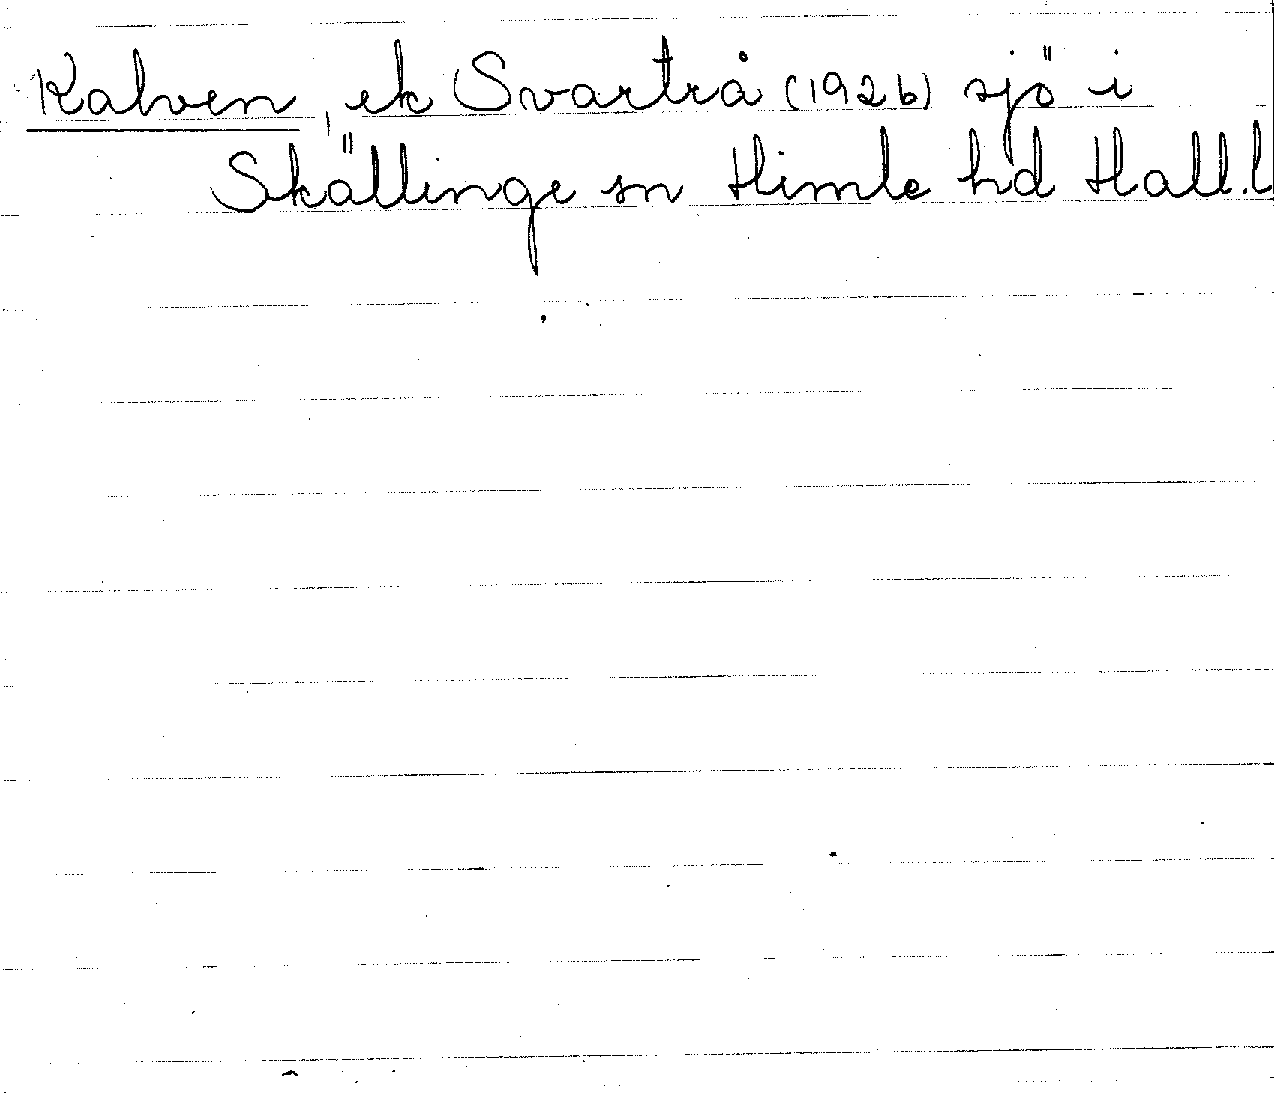 Kalven, ek Svartrå (1926) sjö i
Skällinge sn Himle hd Hall.l